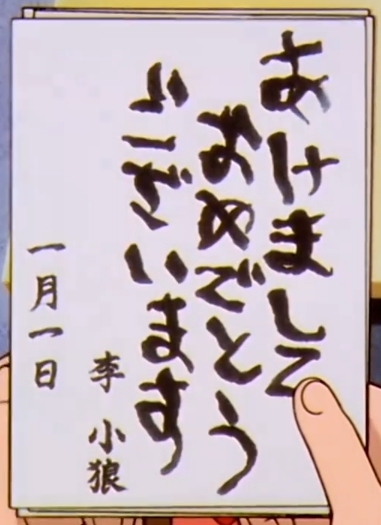 あけまして
おめでとう
ございます
李 小狼
一月一日